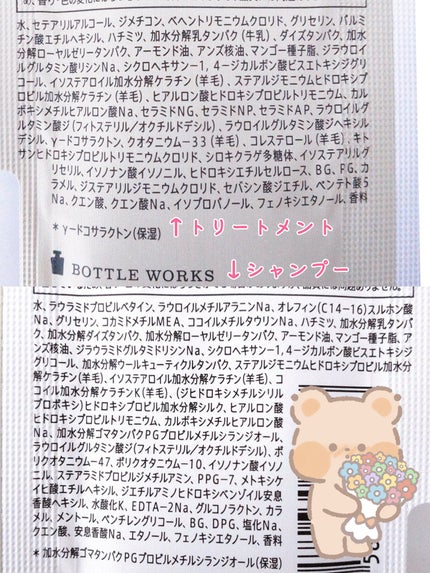 水、セテアリルアルコール、ジメチコン、ベヘントリモニウムクロリド、グリセリン、パルミ
チン酸エチルヘキシル、ハチミツ、加水分解乳タンパク(牛乳)、ダイズタンパク、加
水分解ローヤルゼリータンパク、アーモンド油、アンズ核油、マンゴー種子脂、ジラウロイ
ルグルタミン酸リシンNa、シクロヘキサン-1, 4-ジカルボン酸ビスエトキシジグリ
コール、イソステアロイル加水分解ケラチン(羊毛)、ステアルジモニウムヒドロキシプ
ロピル加水分解ケラチン(羊毛)、ヒアルロン酸ヒドロキシプロピルトリモニウム、カル
ボキシメチルヒアルロン酸Na、セラミドNG、セラミドNP、セラミドAP、ラウロイルグル
タミン酸ジ(フィトステリル/オクチルドデシル)、ラウロイルグルタミン酸ジヘキシル
デシル、γ-ドコサラクトン、クオタニウム-33(羊毛)、コレステロール(羊毛)、キト
サンヒドロキシプロピルトリモニウムクロリド、シロキクラゲ多糖体、イソステアリルグ
リセリル、イソノナン酸イソノニル、ヒドロキシエチルセルロース、BG、PG、カ
ラメル、ジステアリルジモニウムクロリド、セバシン酸ジエチル、ペンテト酸5
Na、クエン酸、クエン酸Na、イソプロパノール、フェノキシエタノール、香料
* γ-ドコサラクトン(保湿)
↑トリートメント
BOTTLE WORKS
↓シャンプー
水、ラウラミドプロピルベタイン、ラウロイルメチルアラニンNa、オレフィン(C14-16)スルホン酸
Na、グリセリン、コカミドメチルMEA、ココイルメチルタウリンNa、ハチミツ、加水分解乳タンパ
ク、加水分解ダイズタンパク、加水分解ローヤルゼリータンパク、アーモンド油、マンゴー種子脂、ア
ンズ核油、ジラウラミドグルタミドリシンNa、シクロヘキサン-1, 4-ジカルボン酸ビスエトキシジ
グリコール、加水分解ウールキューティクルタンパク、ステアルジモニウムヒドロキシプロピル加水分
解ケラチン(羊毛)、イソステアロイル加水分解ケラチン(羊毛)、コ
コイル加水分解ケラチンK(羊毛)、(ジヒドロキシメチルシリル
プロポキシ)ヒドロキシプロピル加水分解シルク、ヒアルロン酸
ヒドロキシプロピルトリモニウム、カルボキシメチルヒアルロン酸
Na、加水分解ゴマタンパクPGプロピルメチルシランジオール、
ラウロイルグルタミン酸ジ(フィトステリル/オクチルドデシル)、ポ
リクオタニウム-47、ポリクオタニウム-10、イソノナン酸イソノ
ニル、ステアラミドプロピルジメチルアミン、PPG-7、メトキシケ
イヒ酸エチルヘキシル、ジエチルアミノヒドロキシベンゾイル安息
香酸ヘキシル、水酸化K、EDTA-2Na、グルコノラクトン、カ
ラメル、メントール、ペンチレングリコール、BG、DPG、塩化Na、
クエン酸、安息香酸Na、エタノール、フェノキシエタノール、香料
* 加水分解ゴマタンパクPGプロピルメチルシランジオール(保湿)